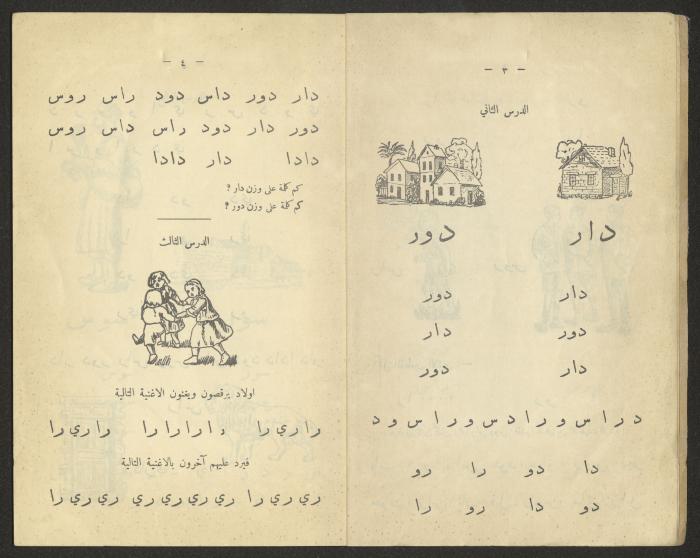 — ٣ —
الدرس الثاني
دار دور
دار دور
دور دار
دار دور
د ر ا س و ر ا د س و ر ا س و د
دا دو را رو
دو دا رو را
— ٤ —
دار دور داس دود راس روس
دور دار دود راس داس روس
دادا دار دادا
كم كلمة على وزن دار ؟
كم كلمة على وزن دور ؟
الدرس الثالث
اولاد يرقصون ويغنون الاغنية التالية
را ري را را را را را را ري را
فيرد عليهم آخرون بالاغنية التالية
ري ري را ري ري ري ري ري ري را